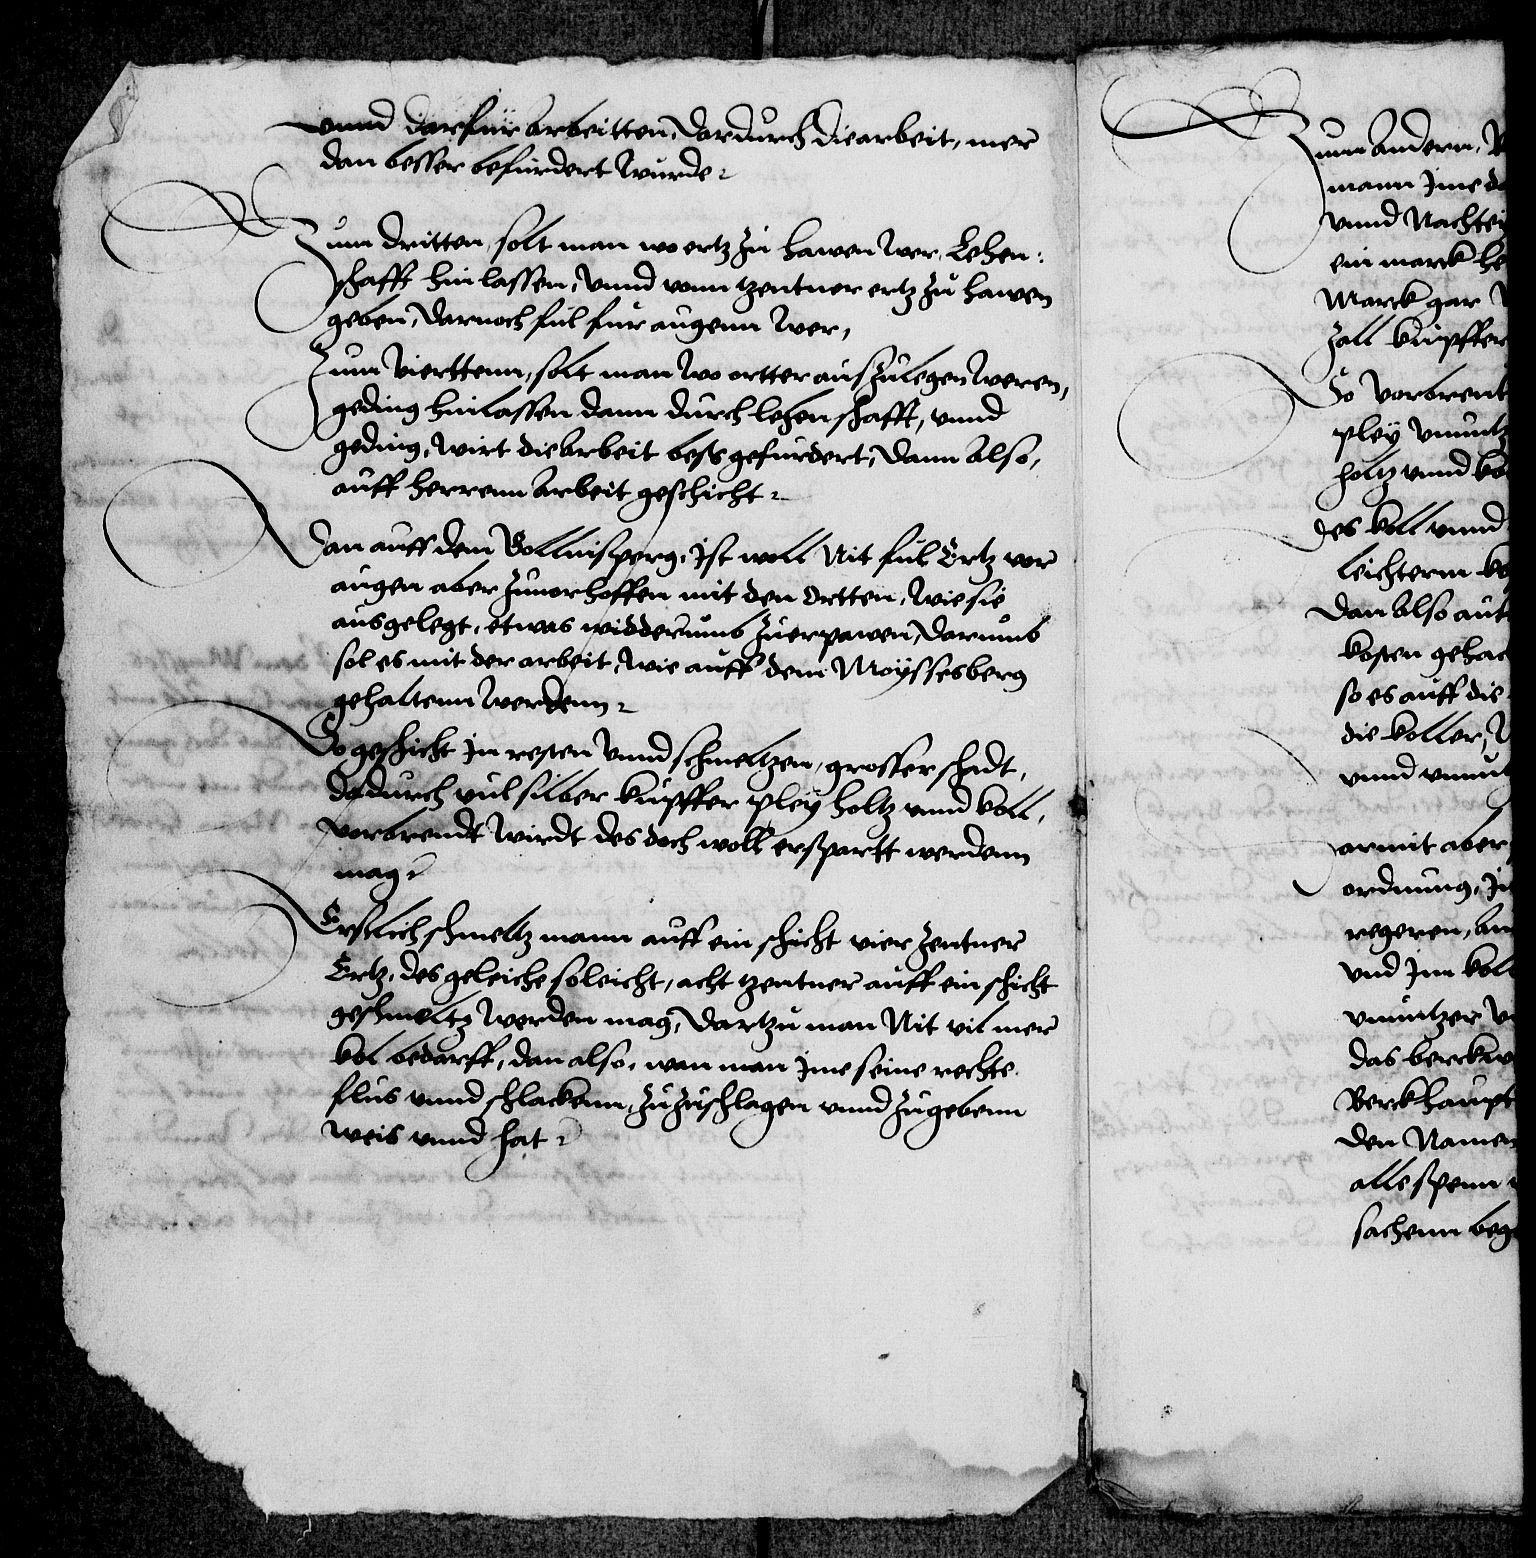 vnnd darfur Arbeitten, Dardurch die arbeit, mer
dan besser befurdert wurde
Zum dritten, solt man wo ertz zu hawen wer, Lehen:
schafft hin lassen, vnnd vom tzentner ertz zu hawen
geben, Darnoch ful fur augenn wer,
Zum Vierttenn, solt man wo ortter aus zulegen weren,
geding hinlassen dann durch lehenschafft, vnnd
geding, wirt die Arbeit bass gefurdert, Dann Also,
auff herrenn Arbeit geschicht
Dan auff dem Gollnisperg, Ist woll Nit ful Ertz vor
augen aber zuuorhoffen mit den Ortten, wie sie
ausgelegt, etwas widderumb zuerpawen, Darumb
sol es mit der arbeit, wie auff dem Moyssesberg
gehaltenn werdenn
So geschicht In resten Vnnd schmeltzen, grosser schadt,
dadurch viil silber kupffer pley holtz vnnd koll,
vorbrendt wirdt des doch woll erspartt werdenn
mag
Erstlich schmeltz mann auff ein schicht vier zentner
Ertz, des geleiche so leicht, acht tzentner auff ein schicht
geschmeltz werden mag, Dartzu man Nit vil mer
kol bedarff, dan also, wan man Ime seine rechte
flus vnnd schlackenn, zu zuschlagen vnnd zugebenn
weis vnnd hat
Zum Andern,
mann Ime
vnnd Nachtei
ein marck
Marck gar
zall kupffer
So vorbrent
pley vnnutz
holtz vnnd
des koll vnnd
leichterm
Dan Also
kosten
so es auff die
die koller,
vnnd
armit aber
ordnung, In
regeren,
vnd Inn
vnuntzer
das berckw
Berckhaupt
den Namen
alle spenn
sachenn beg